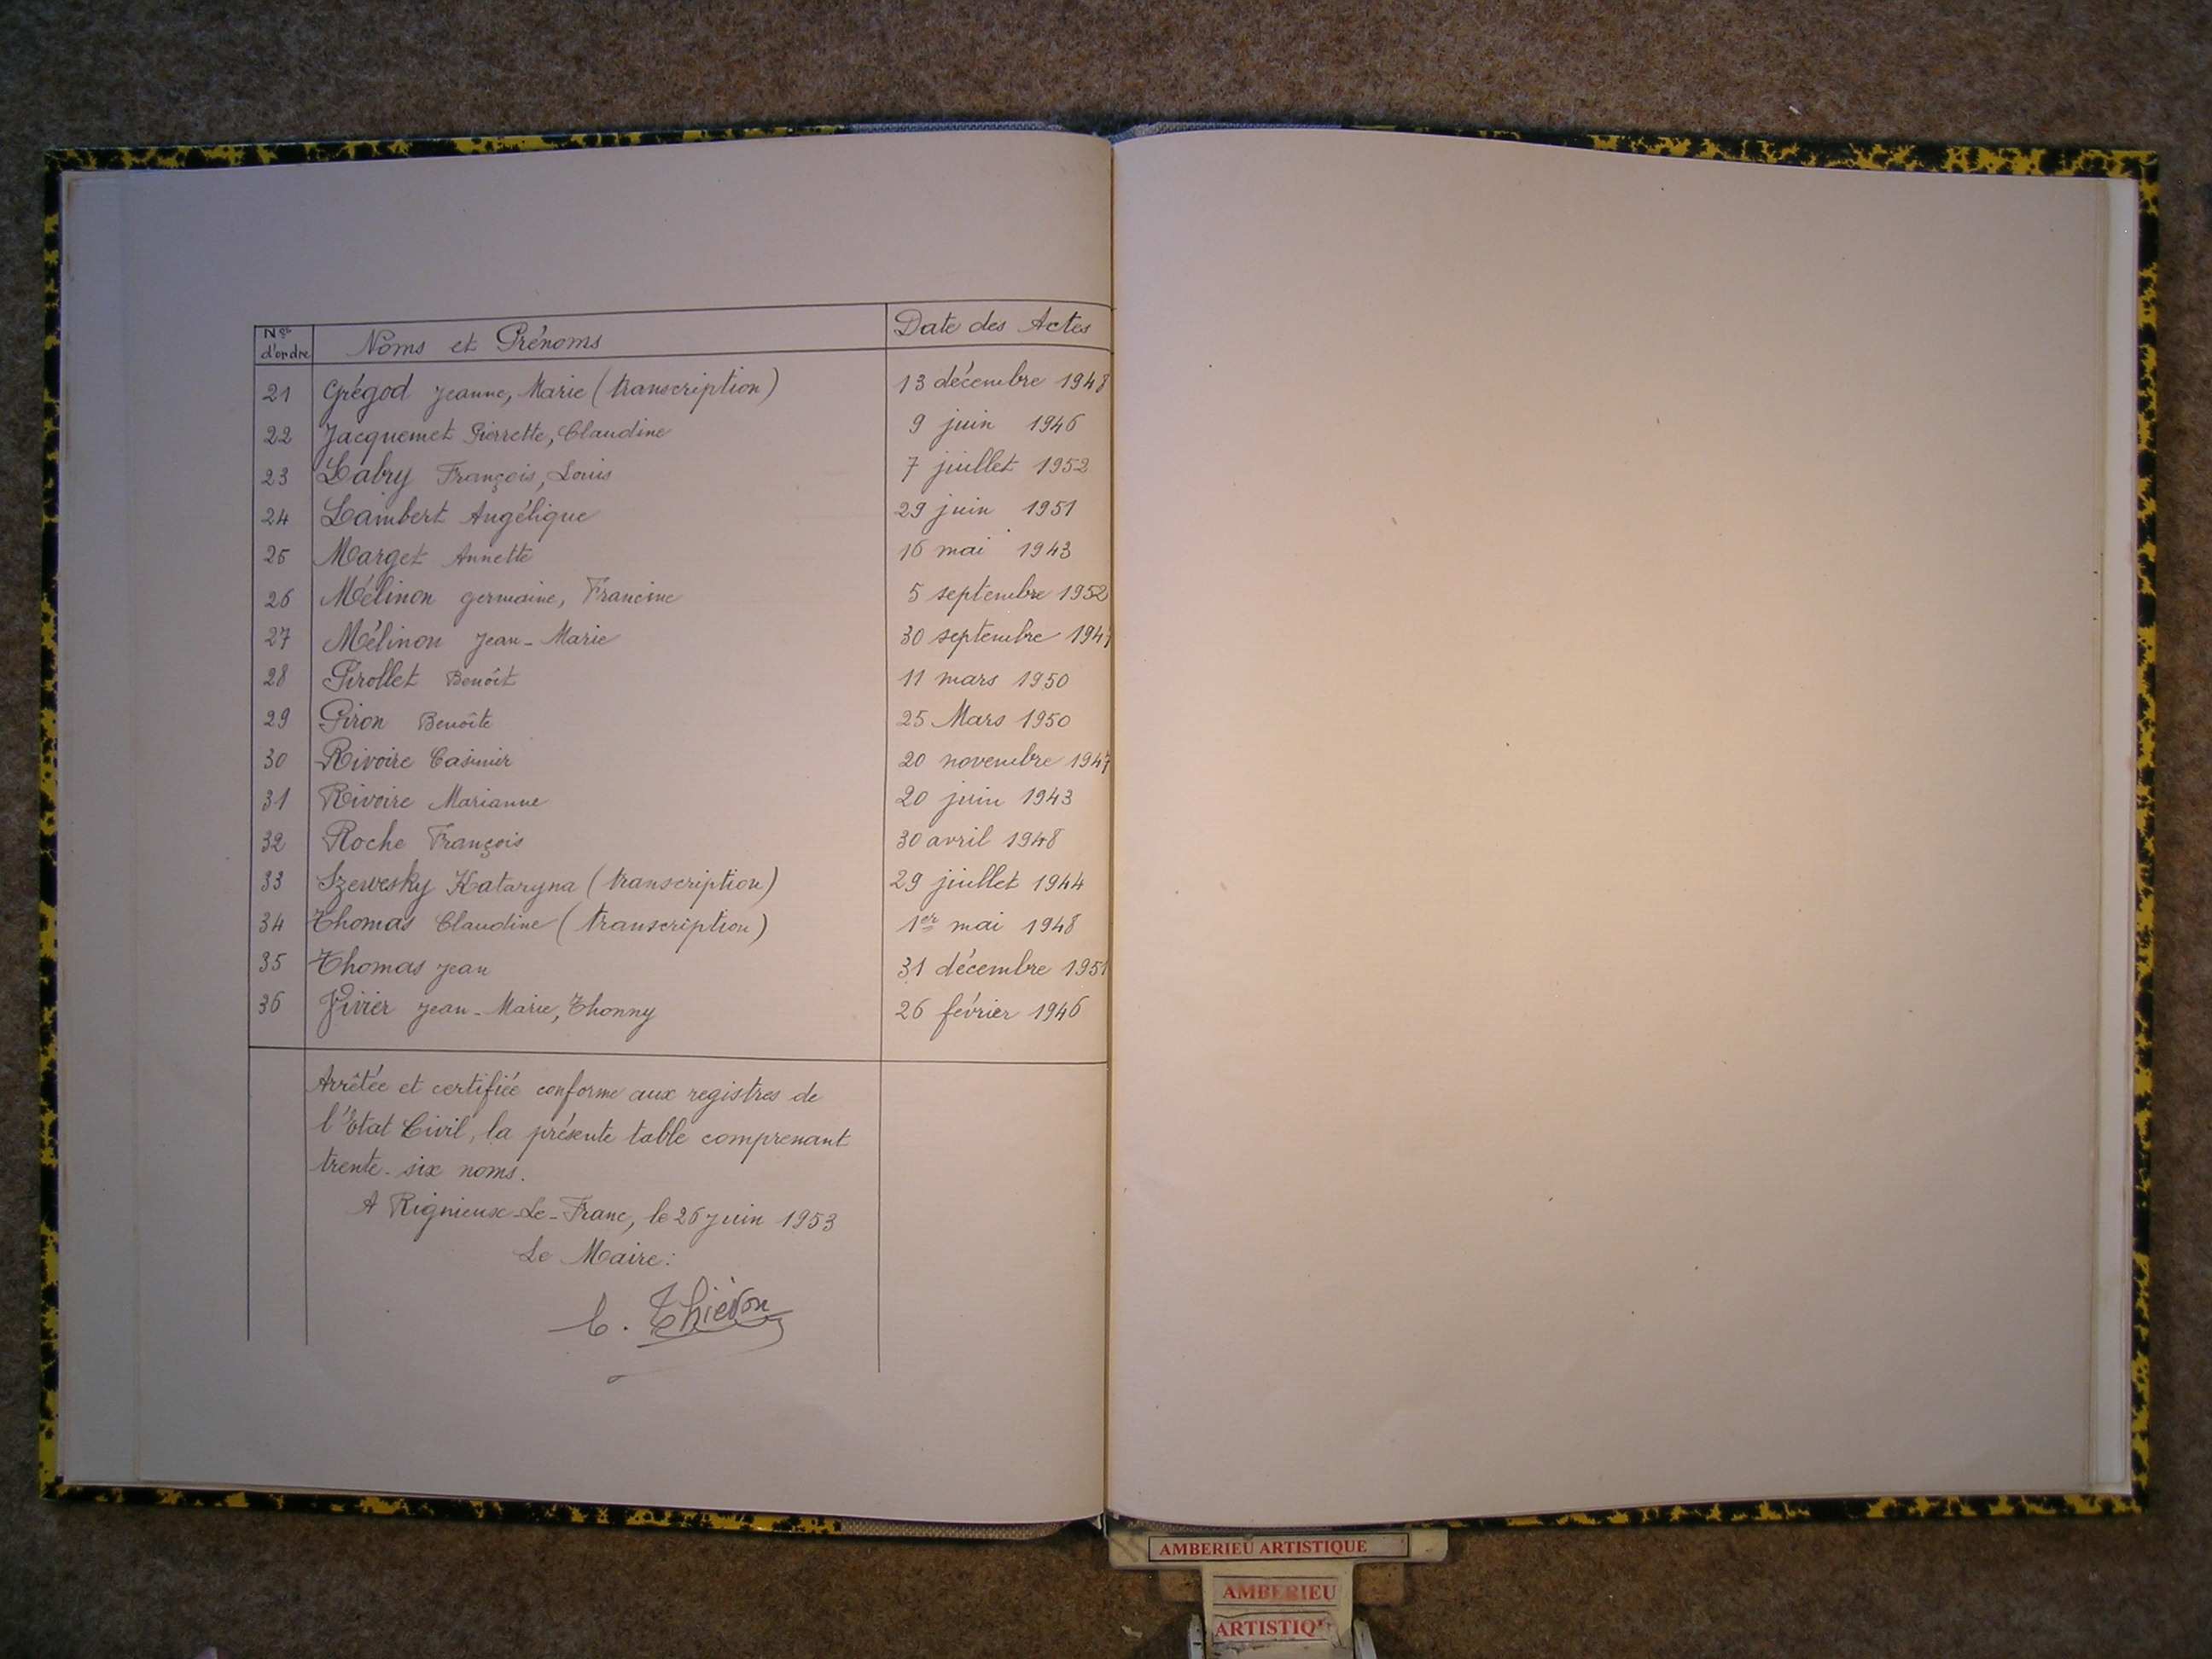 Nos d'ordre Noms et Prénoms Date des Actes
21 Grégod Jeanne, Marie (transcription) 13 décembre 1948
22 Jacquemet Pierrette, Claudine 9 juin 1946
23 Labry François, Louis 7 juillet 1952
24 Lambert Angélique 29 juin 1951
25 Marget Annette 16 mai 1943
26 Mélinon Germaine, Francine 5 septembre 1952
27 Mélinon Jean-Marie 30 septembre
28 Pirollet Benoît 11 mars 1950
29 Piron Benoîte 25 Mars 1950
30 Rivoire Casimir 20 novembre 1947
31 Rivoire Marianne 20 juin 1943
32 Roche François 30 avril 1948
33 Szewesky Kataryna (transcription) 29 juillet 1944
34 Thomas Claudine (transcription) 1er mai 1948
35 Thomas Jean 31 décembre 1951
36 Vivier Jean-Marie, Thonny 26 février 1946
Arrêtée et certifiée conforme aux registres de
l'Etat Civil, la présente table comprenant
trente-six noms.
A Rignieux-Le-Franc, le 26 Juin 1953
Le Maire:
C. Thiévon
AMBERIEU ARTISTIQUE
AMBERIEU
ARTISTIQU